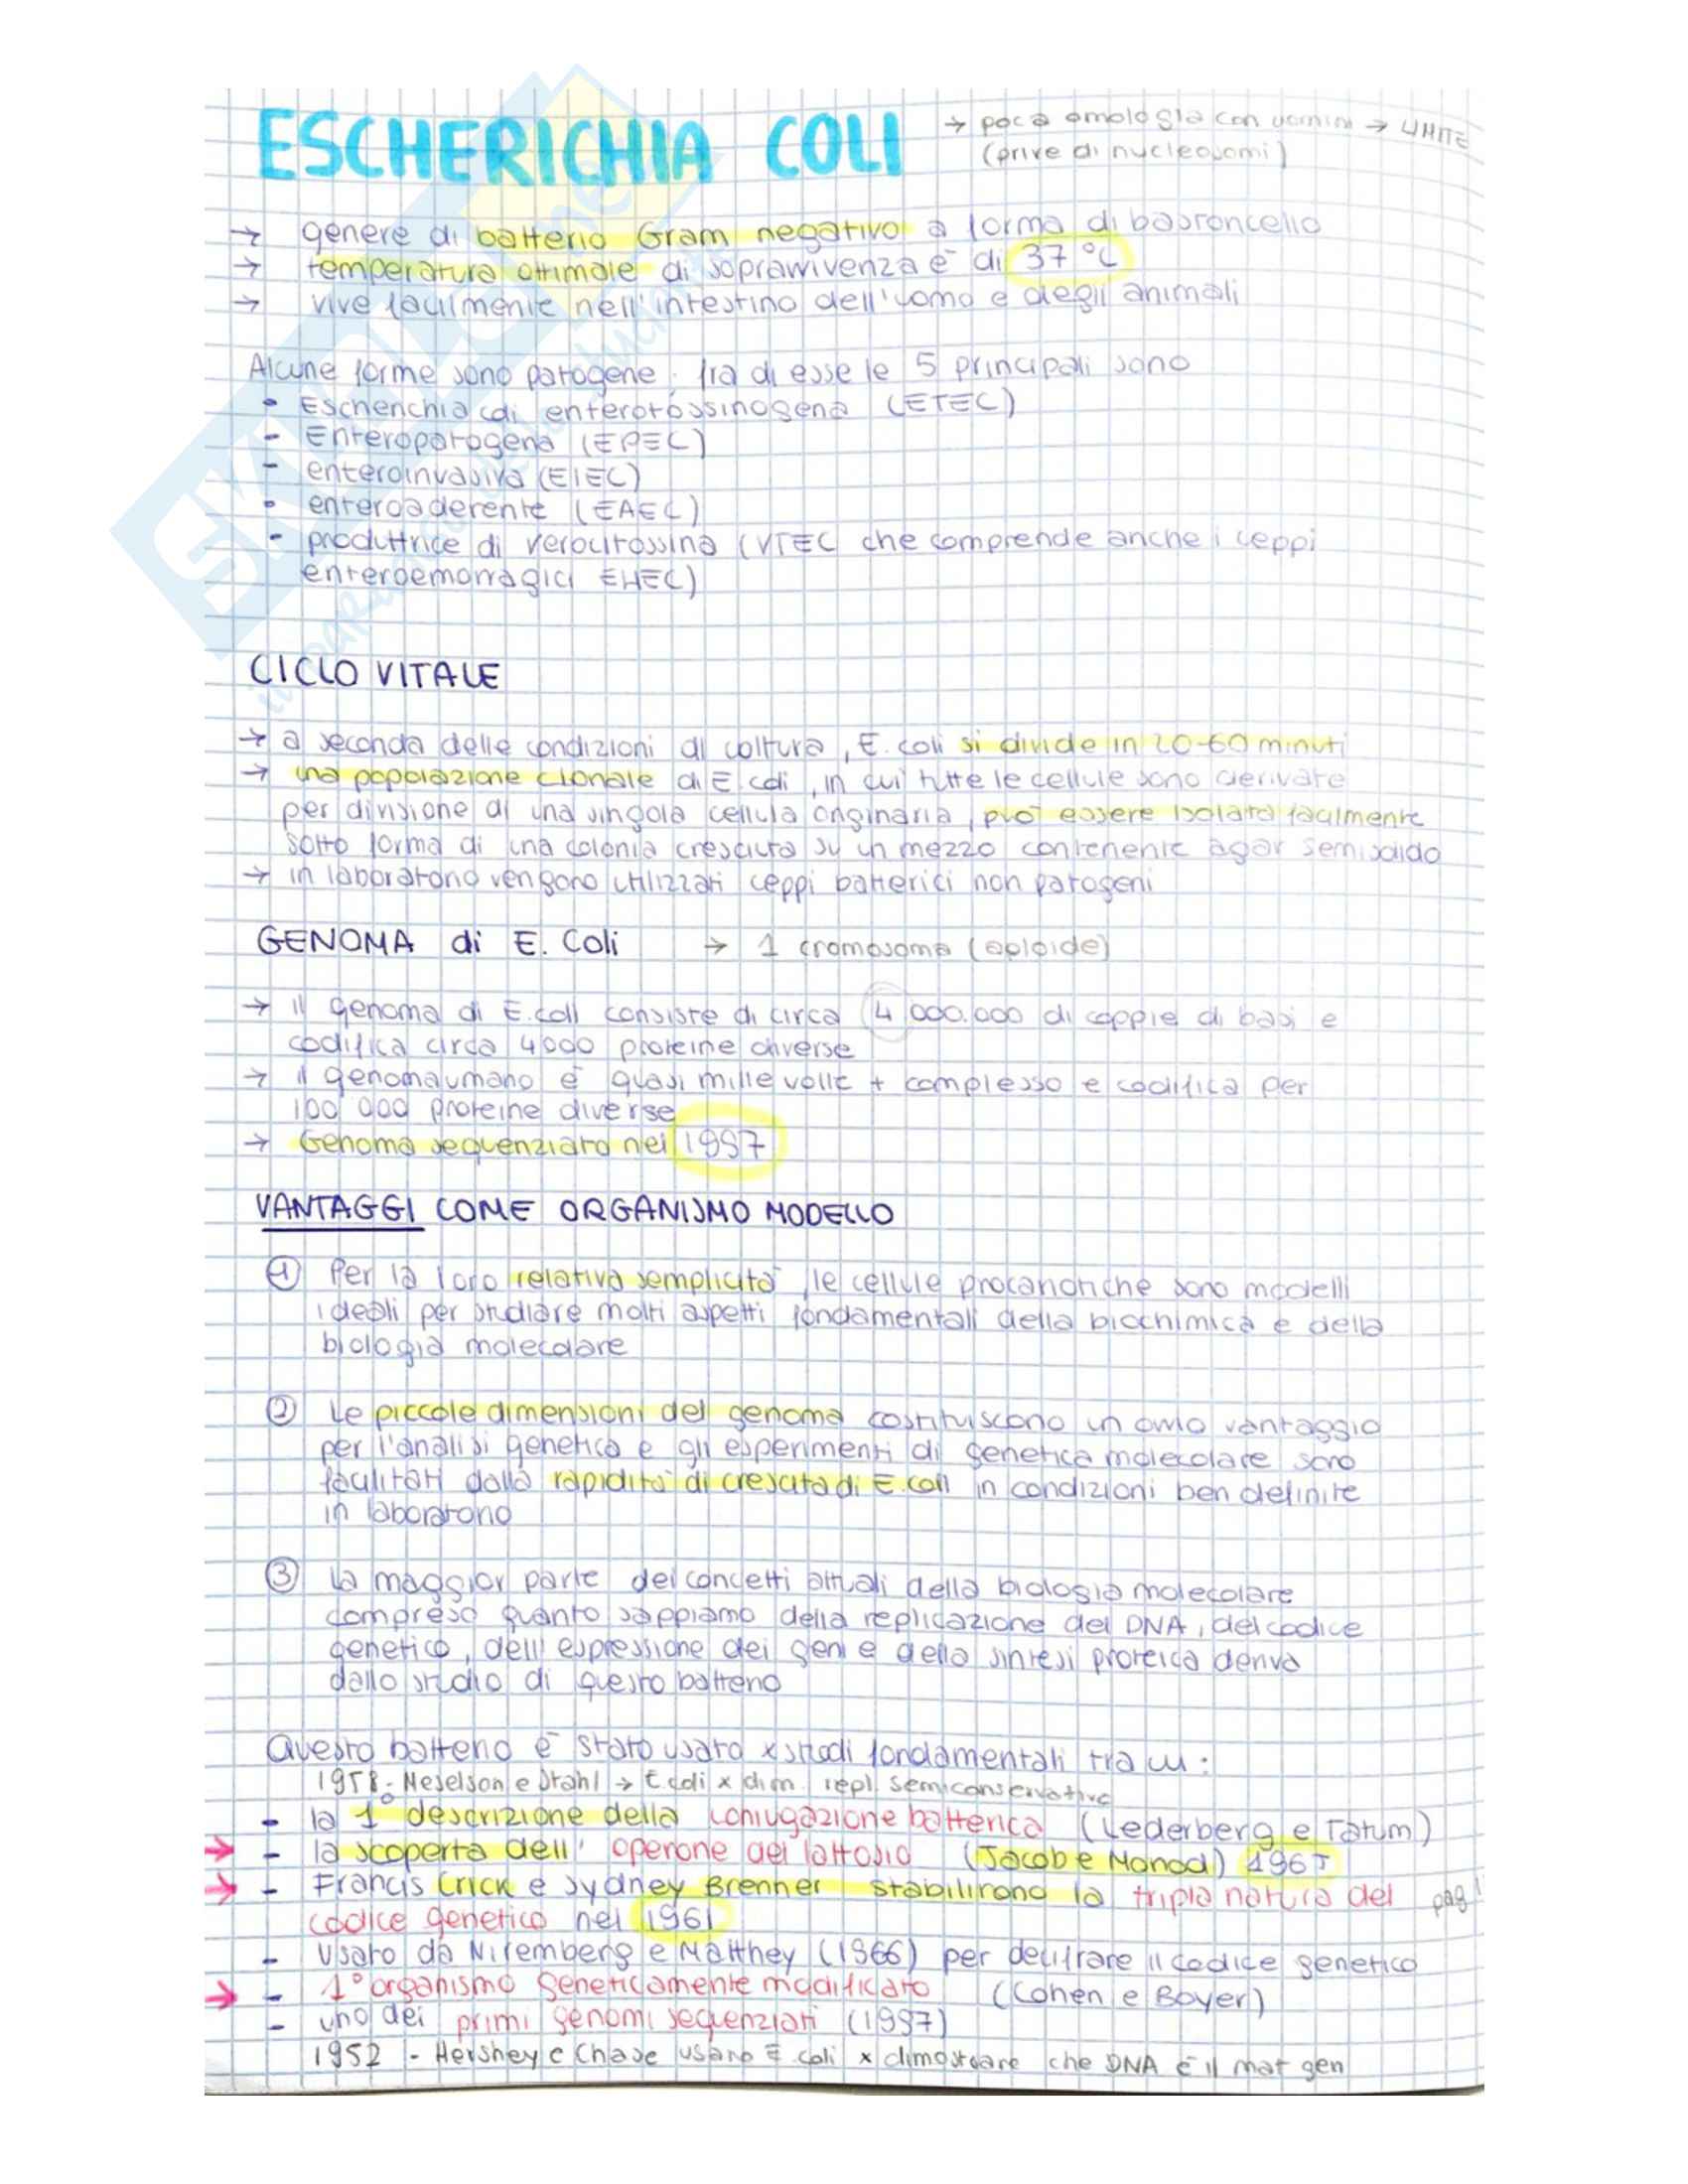 ESCHERICHIA COLI → poca omologia con uomini → LIMITE
(prive di nucleosomi)
→ genere di batterio Gram negativo a forma di bastoncello
→ temperatura ottimale di sopravvivenza è di 37 °C
→ vive facilmente nell'intestino dell'uomo e degli animali
Alcune forme sono patogene; fra di esse le 5 principali sono
- Escherichia coli enterotossinogena (ETEC)
- Enteropatogena (EPEC)
- enteroinvasiva (EIEC)
- enteroaderente (EAEC)
- produttrice di verocitossina (VTEC che comprende anche i ceppi
enteroemorragici EHEC)
CICLO VITALE
→ a seconda delle condizioni di coltura, E. coli si divide in 20-60 minuti
→ una popolazione clonale di E. coli, in cui tutte le cellule sono derivate
per divisione di una singola cellula originaria, può essere isolata facilmente
sotto forma di una colonia cresciuta su un mezzo contenente agar semisolido
→ in laboratorio vengono utilizzati ceppi batterici non patogeni
GENOMA di E. Coli → 1 cromosoma (aploide)
→ il genoma di E. coli consiste di circa 4 000.000 di coppie di basi e
codifica circa 4000 proteine diverse
→ il genoma umano è quasi mille volte + complesso e codifica per
100 000 proteine diverse
→ Genoma sequenziato nel 1997
VANTAGGI COME ORGANISMO MODELLO
① Per la loro relativa semplicità, le cellule procariotiche sono modelli
ideali per studiare molti aspetti fondamentali della biochimica e della
biologia molecolare
② Le piccole dimensioni del genoma costituiscono un ovvio vantaggio
per l'analisi genetica e gli esperimenti di genetica molecolare sono
facilitati dalla rapidità di crescita di E. coli in condizioni ben definite
in laboratorio
③ La maggior parte dei concetti attuali della biologia molecolare
compreso quanto sappiamo della replicazione del DNA, del codice
genetico, dell'espressione dei geni e della sintesi proteica deriva
dallo studio di questo batterio
Questo batterio è stato usato x studi fondamentali tra cui:
1958 - Meselson e Stahl → E. coli x dim. repl. semiconservativa
- la 1° descrizione della coniugazione batterica (Lederberg e Tatum)
→ - la scoperta dell' operone del lattosio (Jacob e Monod)
→ - Francis Crick e Sydney Brenner stabilirono la tripla natura del pag
codice genetico nel 1961
- Usato da Niremberg e Matthey (1966) per decifrare il codice genetico
→ - 1° organismo geneticamente modificato (Cohen e Boyer)
- uno dei primi genomi sequenziati (1997)
1952 - Hershey e Chase usano E. coli x dimostrare che DNA è il mat gen